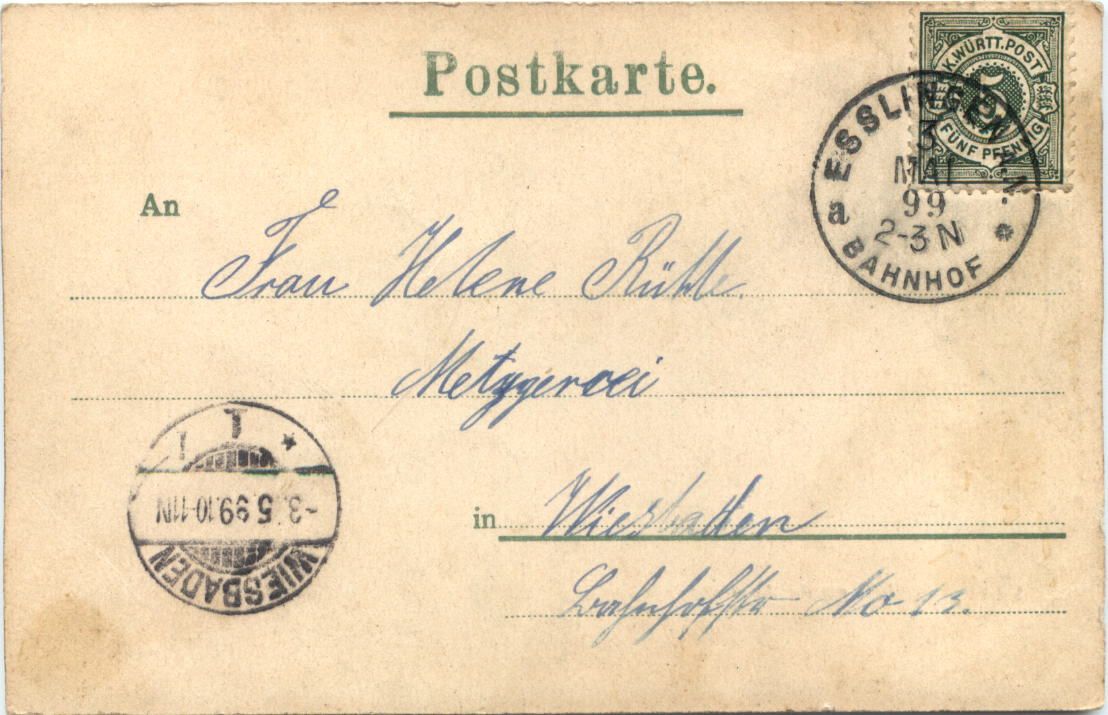 Postkarte.
K. WÜRTT. POST
5
FÜNF PFENNIG
ESSLINGEN A.N.
3
MAI
99
2-3 N
a
BAHNHOF
An
Frau Helene Rühle.
Metzgerei
1 1
-3.5.99.10-11N
WIESBADEN
in Wiesbaden
Bahnhofstr No 13.